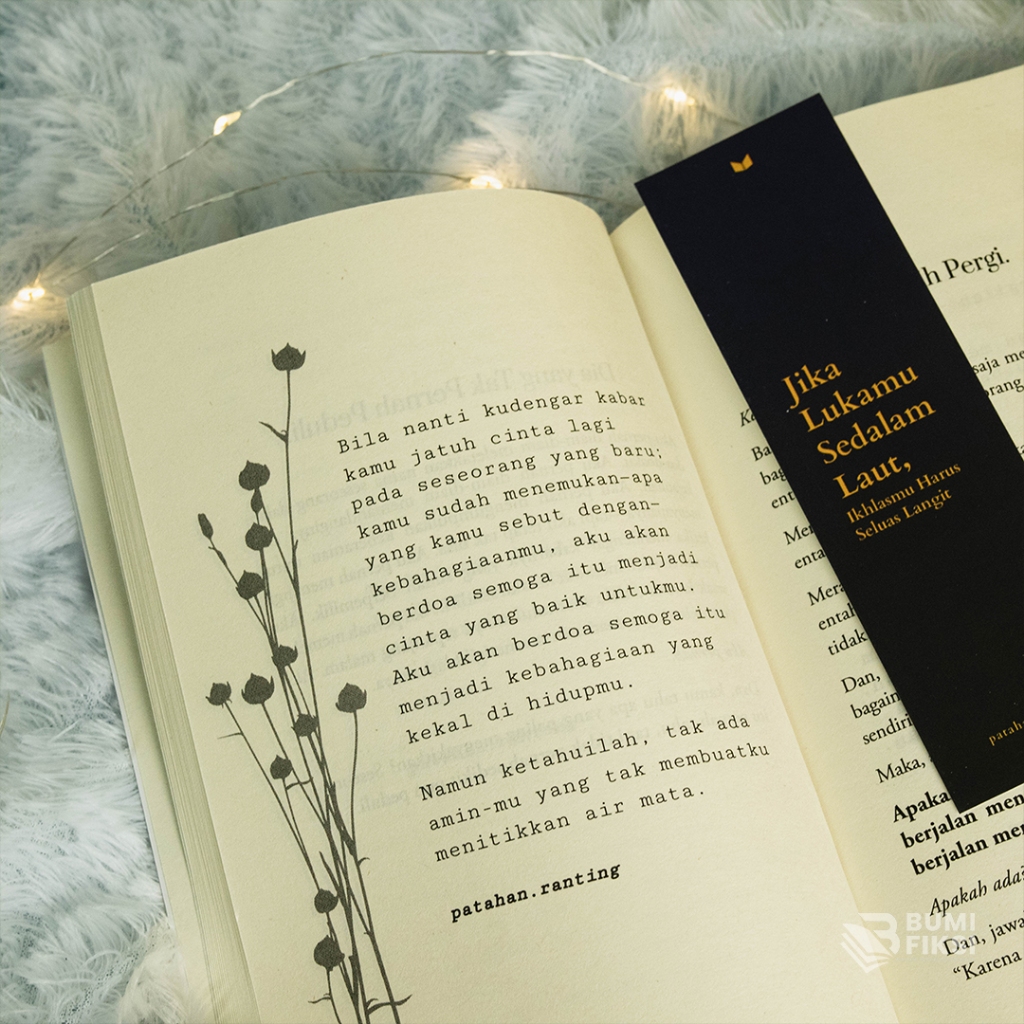 Bila nanti kudengar kabar
kamu jatuh cinta lagi
pada seseorang yang baru;
kamu sudah menemukan—apa
yang kamu sebut dengan—
kebahagiaanmu, aku akan
berdoa semoga itu menjadi
cinta yang baik untukmu.
Aku akan berdoa semoga itu
menjadi kebahagiaan yang
kekal di hidupmu.
Namun ketahuilah, tak ada
amin-mu yang tak membuatku
menitikkan air mata.
patahan.ranting
Jika
Lukamu
Sedalam
Laut,
Ikhlasmu Harus
Seluas Langit
Pergi.
saja
Dan,
sendiri
Maka,
berjalan
berjalan
Apakah ada
Dan,
“Karena
BUMI
FIKSI